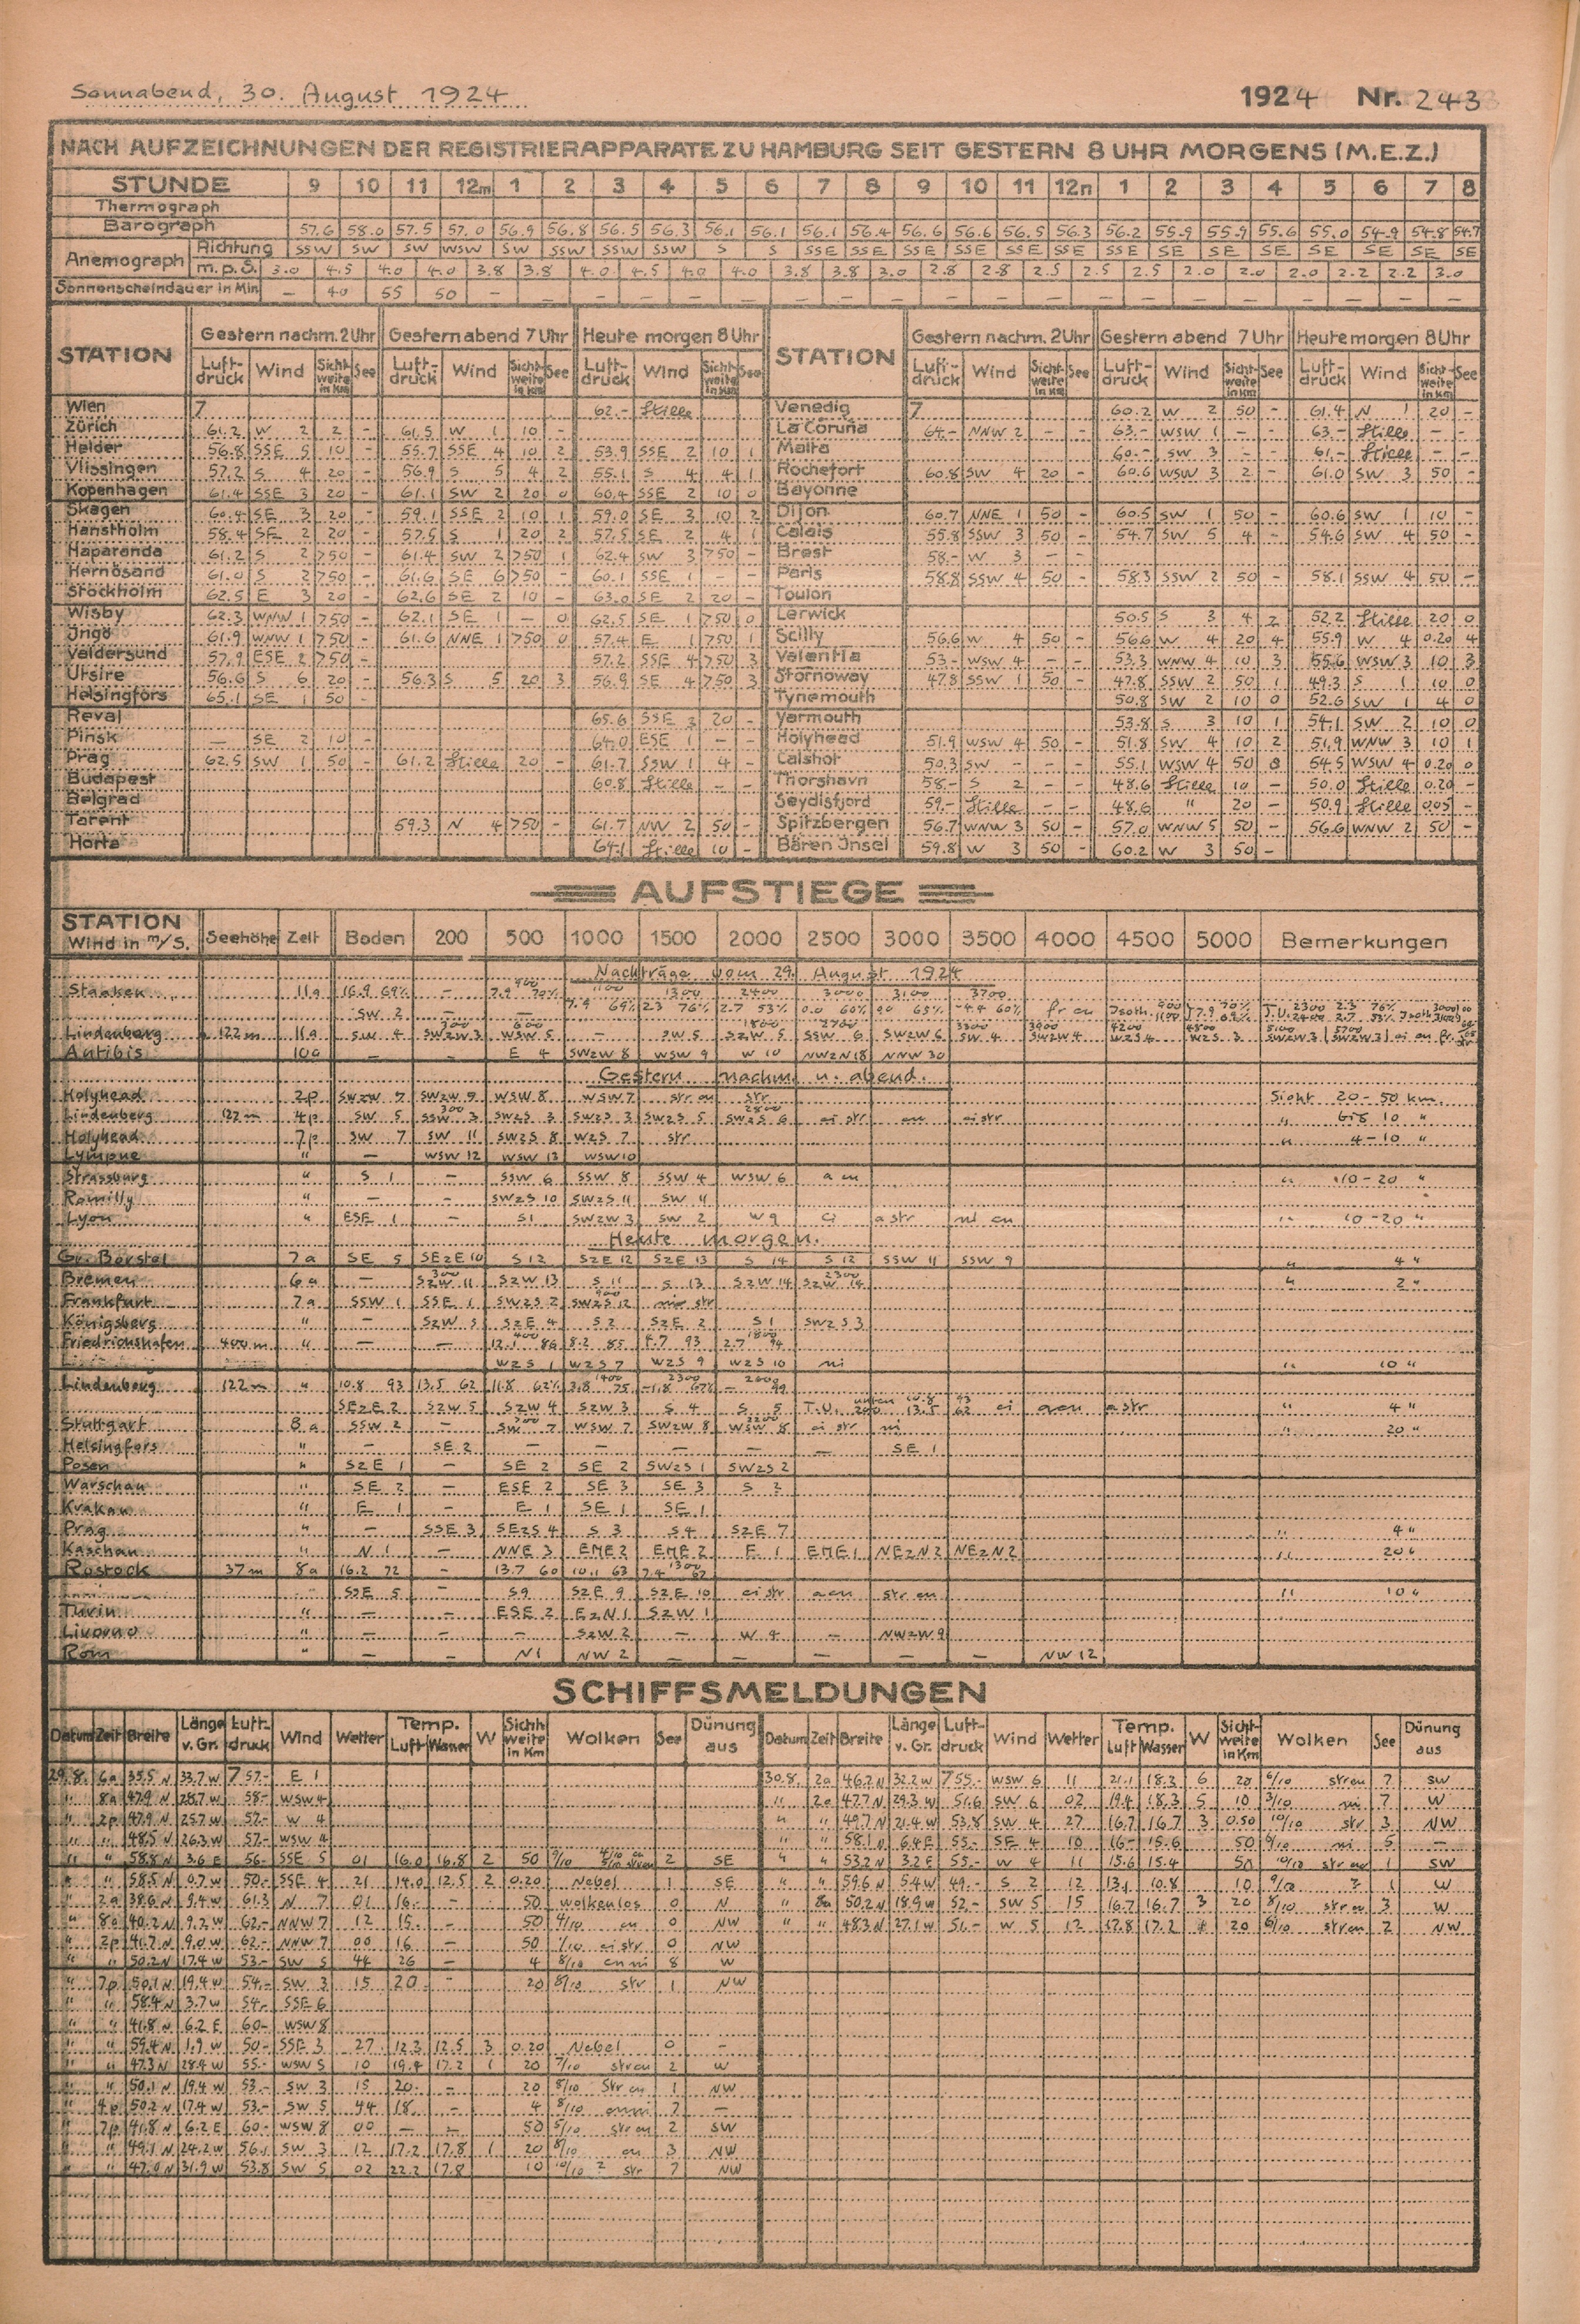 Sonnabend, 30. August 1924
1924 Nr. 243
NACH AUFZEICHNUNGEN DER REGISTRIERAPPARATE ZU HAMBURG SEIT GESTERN 8 UHR MORGENS (M.E.Z.)
STUNDE 9 10 11 12m 1 2 3 4 5 6 7 8 9 10 11 12n 1 2 3 4 5 6 7 8
Thermograph
Barograph 57.6 58.0 57.5 57.0 56.9 56.8 56.5 56.3 56.1 56.1 56.1 56.4 56.6 56.6 56.5 56.3 56.2 55.9 55.9 55.6 55.0 54.9 54.8 54.7
Anemograph Richtung SSW SW SW WSW SW SSW SSW SSW S S SSE SSE SSE SSE SSE SSE SSE SE SE SE SE SE SE SE
m.p.S. 3.0 4.5 4.0 4.0 3.8 3.8 4.0 4.5 4.0 4.0 3.8 3.8 3.0 2.8 2.8 2.5 2.5 2.5 2.0 2.0 2.0 2.2 2.2 3.0
Sonnenscheindauer in Min — 40 55 50 — — — — — — — — — — — — — — — — — — — —
STATION Gestern nachm. 2 Uhr Gestern abend 7 Uhr Heute morgen 8 Uhr STATION Gestern nachm. 2 Uhr Gestern abend 7 Uhr Heute morgen 8 Uhr
Luft-druck Wind Sicht-weite in Km See Luft-druck Wind Sicht-weite in Km See Luft-druck Wind Sicht-weite in Km See Luft-druck Wind Sicht-weite in Km See Luft-druck Wind Sicht-weite in Km See Luft-druck Wind Sicht-weite in Km See
Wien 7 62.- Stille Venedig 7 60.2 W 2 50 - 61.4 N 1 20 -
Zürich 61.2 W 2 2 - 61.5 W 1 10 - La Coruña 64.- NNW 2 - - 63.- WSW 1 - - 63.- Stille - -
Helder 56.8 SSE 5 10 - 55.7 SSE 4 10 2 53.9 SSE 2 10 1 Malta 60.- SW 3 - - 61.- Stille - -
Vlissingen 57.2 S 4 20 - 56.9 S 5 4 2 55.1 S 4 4 1 Rochefort 60.8 SW 4 20 - 60.6 WSW 3 2 - 61.0 SW 3 50 -
Kopenhagen 61.4 SSE 3 20 - 61.1 SW 2 20 0 60.4 SSE 2 10 0 Bayonne
Skagen 60.4 SE 3 20 - 59.1 SSE 2 10 1 59.0 SE 3 10 2 Dijon 60.7 NNE 1 50 - 60.5 SW 1 50 - 60.6 SW 1 10 -
Hanstholm 58.4 SE 2 20 - 57.5 S 1 20 2 57.5 SE 2 4 1 Calais 55.8 SSW 3 50 - 54.7 SW 5 4 - 54.6 SW 4 50 -
Haparanda 61.2 S 2 >50 - 61.4 SW 2 >50 1 62.4 SW 3 >50 - Brest 58.- W 3 - -
Hernösand 61.0 S 2 >50 - 61.6 SE 6 >50 - 60.1 SSE 1 - - Paris 58.8 SSW 4 50 - 58.3 SSW 2 50 - 58.1 SSW 4 50 -
Stockholm 62.5 E 3 20 - 62.6 SE 2 10 - 63.0 SE 2 20 - Toulon
Wisby 62.3 WNW 1 >50 - 62.1 SE 1 - 0 62.5 SE 1 >50 0 Lerwick 50.5 S 3 4 2 52.2 Stille 20 0
Ingö 61.9 WNW 1 >50 - 61.6 NNE 1 >50 0 57.4 E 1 >50 1 Scilly 56.6 W 4 50 - 56.6 W 4 20 4 55.9 W 4 0.20 4
Valdersund 57.9 ESE 2 >50 - 57.2 SSE 4 >50 3 Valentia 53.- WSW 4 - - 53.3 WNW 4 10 3 55.6 WSW 3 10 3
Utsire 56.6 S 6 20 - 56.3 S 5 20 3 56.9 SE 4 >50 3 Stornoway 47.8 SSW 1 50 - 47.8 SSW 2 50 1 49.3 S 1 10 0
Helsingfors 65.1 SE 1 50 - Tynemouth 50.8 SW 2 10 0 52.6 SW 1 4 0
Reval 65.6 SSE 2 20 - Yarmouth 53.8 S 3 10 1 54.1 SW 2 10 0
Pinsk — SE 2 10 - 64.0 ESE 1 - - Holyhead 51.9 WSW 4 50 - 51.8 SW 4 10 2 51.9 WNW 3 10 1
Prag 62.5 SW 1 50 - 61.2 Stille 20 - 61.7 SSW 1 4 - Calshot 50.3 SW - - - 55.1 WSW 4 50 0 54.5 WSW 4 0.20 0
Budapest 60.8 Stille - - Thorshavn 58.- S 2 - 48.6 Stille 10 - 50.0 Stille 0.20 -
Belgrad Seydisfjord 59.- Stille - - 48.6 " 20 - 50.9 Stille 0.05 -
Tarent 59.3 N 4 >50 - 61.7 NW 2 50 - Spitzbergen 56.7 WNW 3 50 - 57.0 WNW 5 50 - 56.6 WNW 2 50 -
Horta 64.1 Stille 10 - Bären Insel 59.8 W 3 50 - 60.2 W 3 50 -
AUFSTIEGE
STATION Wind in m/s. Seehöhe Zeit Boden 200 500 1000 1500 2000 2500 3000 3500 4000 4500 5000 Bemerkungen
Nachträge vom 29. August 1924
900 1100 1300 2400 3000 3100 3700
Staaken 11a 16.9 69% — 7.9 70% 7.9 69% 2.3 76% 2.7 53% 0.0 60% 0.0 63% -4.4 60% fr cu
SW 2 — —
300 600 1800 2700 3300 3900 4200 4800 5100 5700
Lindenberg 122 m 11a SW 4 SWzW 3 WSW 5 — SW 5 SzW 5 SSW 6 SWzW 6 SW 4 SWzW 4 WzS 4 WzS 3 SWzW 3 SWzW 3
Antibis 10a — — E 4 SWzW 8 WSW 9 W 10 NWzN 18 NNW 30
Gestern nachm. u. abend.
Holyhead 2p SWzW 7 SWzW 9 WSW 8 WSW 7 str cu str Sicht 20-50 km.
300 2800
Lindenberg 122 m 4p SW 5 SSW 3 SWzS 3 SWzS 3 SWzS 5 SWzS 6 ci str cu ci str " bis 10 "
Holyhead 7p SW 7 SW 11 SWzS 8 WzS 7 str " 4-10 "
Lympne " — WSW 12 WSW 13 WSW 10
Strassburg " S 1 — SSW 6 SSW 8 SSW 4 WSW 6 a cu " 10-20 "
Romilly " — — SWzS 10 SWzS 11 SW 11
Lyon " ESE 1 — S 1 SWzW 3 SW 2 W 9 ci a str ni cu " 10-20 "
Heute morgen.
Gr. Borstel 7a SE 5 SEzE 10 S 12 SzE 12 SzE 13 S 14 S 12 SSW 11 SSW 9 " 4 "
300 2300
Bremen 6a — SzW 11 SzW 13 S 11 S 13 SzW 14 SzW 14 " 2 "
900
Frankfurt 7a SSW 1 SSE 1 SWzS 2 SWzS 12 str
Königsberg " — SzW 3 SzE 4 S 2 SzE 2 S 1 SWzS 3
400 1800
Friedrichshafen 400 m " — — 12.1 86 8.2 85 4.7 93 2.7 94
WzS 1 WzS 7 WzS 9 WzS 10 ni " 10 "
1400 2300 2600
Lindenberg 122 m " 10.8 93 13.5 62 11.8 62% 3.8 75 -1.8 67% — 99
SEzE 2 SzW 5 SzW 4 SzW 3 S 4 S 5 T.U. unten 10.8 93 200 13.5 62 ci a cu a str " 4 "
700 2200
Stuttgart 8a SSW 2 — SW 7 WSW 7 SWzW 8 WSW 8 ci str ni " 20 "
Helsingfors " — SE 2 — — — — — SE 1
Posen " SzE 1 — SE 2 SE 2 SWzS 1 SWzS 2
Warschau " SE 2 — ESE 2 SE 3 SE 3 S 2
Krakau " E 1 — E 1 SE 1 SE 1
Prag " — SSE 3 SEzS 4 S 3 S 4 SzE 7 " 4 "
Kaschau " N 1 — NNE 3 ENE 2 ENE 2 E 1 ENE 1 NEzN 2 NEzN 2 " 20 "
1300
Rostock 37 m 8a 16.2 72 — 13.7 60 10.1 63 7.4 67
SzE 5 — S 9 SzE 9 SzE 10 ci str a cu str cu " 10 "
Turin " — — ESE 2 EzN 1 SzW 1
Livorno " — — — SzW 2 — W 4 — NWzW 9
Rom " — — N 1 NW 2 — — — — — NW 12
SCHIFFSMELDUNGEN
Datum Zeit Breite Länge v. Gr. Luft-druck Wind Wetter Temp. Luft Wasser W Sicht-weite in Km Wolken See Dünung aus Datum Zeit Breite Länge v. Gr. Luft-druck Wind Wetter Temp. Luft Wasser W Sicht-weite in Km Wolken See Dünung aus
29.8. 6a 35.5 N 33.7 W 7 57.- E 1 30.8. 2a 46.7 N 32.2 W 7 55.- WSW 6 11 21.1 18.3 6 20 6/10 str cu 7 SW
" 8a 47.9 N 28.7 W 58.- WSW 4 " 2a 47.7 N 29.3 W 51.6 SW 6 02 19.4 18.3 5 10 3/10 ni 7 W
" 2p 47.9 N 25.7 W 57.- W 4 " " 49.7 N 21.4 W 53.8 SW 4 27 16.7 16.7 3 0.50 10/10 str 3 NW
" " 48.5 N 26.3 W 57.- WSW 4 " " 58.1 N 6.4 E 55.- SE 4 10 16.- 15.6 50 9/10 ni 5 —
" " 58.8 N 3.6 E 56.- SSE 5 01 16.0 16.8 2 50 9/10 2 SE " " 53.2 N 3.2 E 55.- W 4 11 15.6 15.4 50 10/10 str cu 1 SW
" " 58.5 N 0.7 W 50.- SSE 4 21 14.0 12.5 2 0.20 Nebel 1 SE " " 59.6 N 5.4 W 49.- S 2 12 13.1 10.8 10 9/10 ? 1 W
" 2a 38.6 N 9.4 W 61.3 N 7 01 16.- - 50 wolkenlos 0 N " 8a 50.2 N 18.9 W 52.- SW 5 15 16.7 16.7 3 20 8/10 str cu 3 W
" 8a 40.2 N 9.2 W 62.- NNW 7 12 15.- - 50 4/10 cu 0 NW " " 48.3 N 27.1 W 51.- W 5 12 17.8 17.2 4 20 6/10 str cu 2 NW
" 2p 41.7 N 9.0 W 62.- NNW 7 00 16 - 50 1/10 ci str 0 NW
" " 50.2 N 17.4 W 53.- SW 5 44 26 - 4 8/10 cu ni 8 W
" 7p 50.1 N 19.4 W 54.- SW 3 15 20.- - 20 8/10 str 1 NW
" " 58.4 N 3.7 W 54.- SSE 6
" " 41.8 N 6.2 E 60.- WSW 8
" " 59.4 N 1.9 W 50.- SSE 3 27 12.3 12.5 3 0.20 Nebel 0 -
" " 47.3 N 28.4 W 55.- WSW 5 10 19.4 17.2 1 20 7/10 str cu 2 W
" " 50.1 N 19.4 W 53.- SW 3 15 20.- - 20 8/10 Str cu 1 NW
" 4p 50.2 N 17.4 W 53.- SW 5 44 18. - 4 8/10 cu ni 7 —
" 7p 41.8 N 6.2 E 60.- WSW 8 00 - - 50 5/10 str cu 2 SW
" " 49.1 N 24.2 W 56.1 SW 3 12 17.2 17.8 1 20 8/10 cu 3 NW
" " 47.0 N 31.9 W 53.8 SW 5 02 22.2 17.8 10 10/10 ? str 7 NW